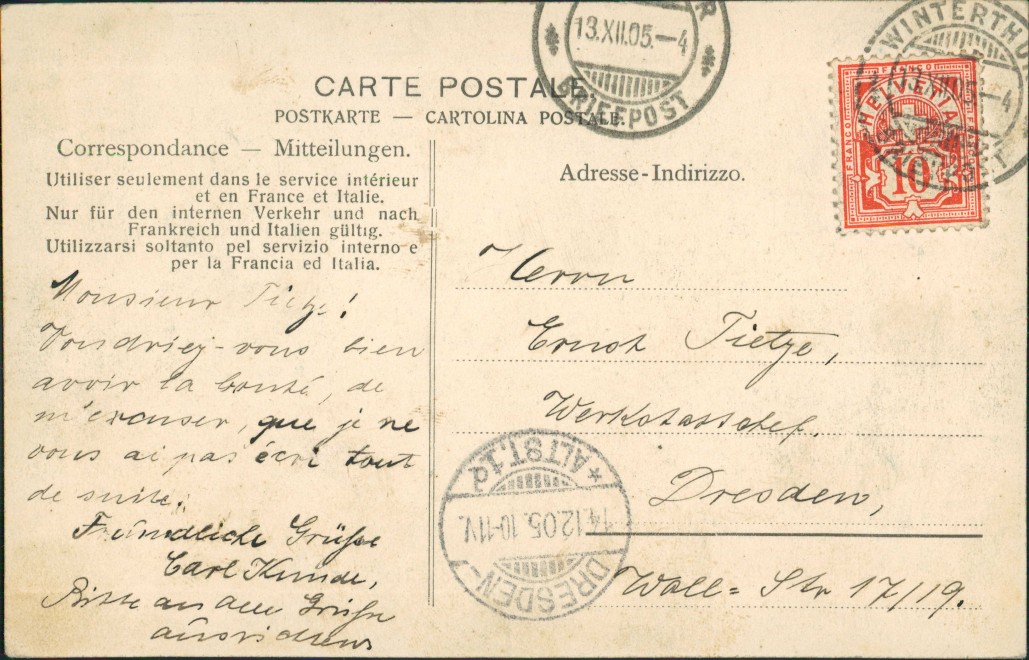 CARTE POSTALE.
POSTKARTE — CARTOLINA POSTALE.
Correspondance — Mitteilungen.
Utiliser seulement dans le service intérieur
et en France et Italie.
Nur für den internen Verkehr und nach
Frankreich und Italien gültig.
Utilizzarsi soltanto pel servizio interno e
per la Francia ed Italia.
Monsieur Tietze!
Voudriez-vous bien
avoir la bonté, de
m'excuser, que je ne
vous ai pas écri tout
de suite.
Freundliche Grüße
Carl Kunde,
Bitte an den Grüße
ausrichten
Adresse-Indirizzo.
Herrn
Ernst Tietze,
Werkstattchef.
Dresden,
Wall=Str 17/19.
13.XII.05.–4
BRIEFPOST
WINTERTHUR
FRANCO
HELVETIA
10
DRESDEN-
ALTST.1d
14.12.05.10-11V.